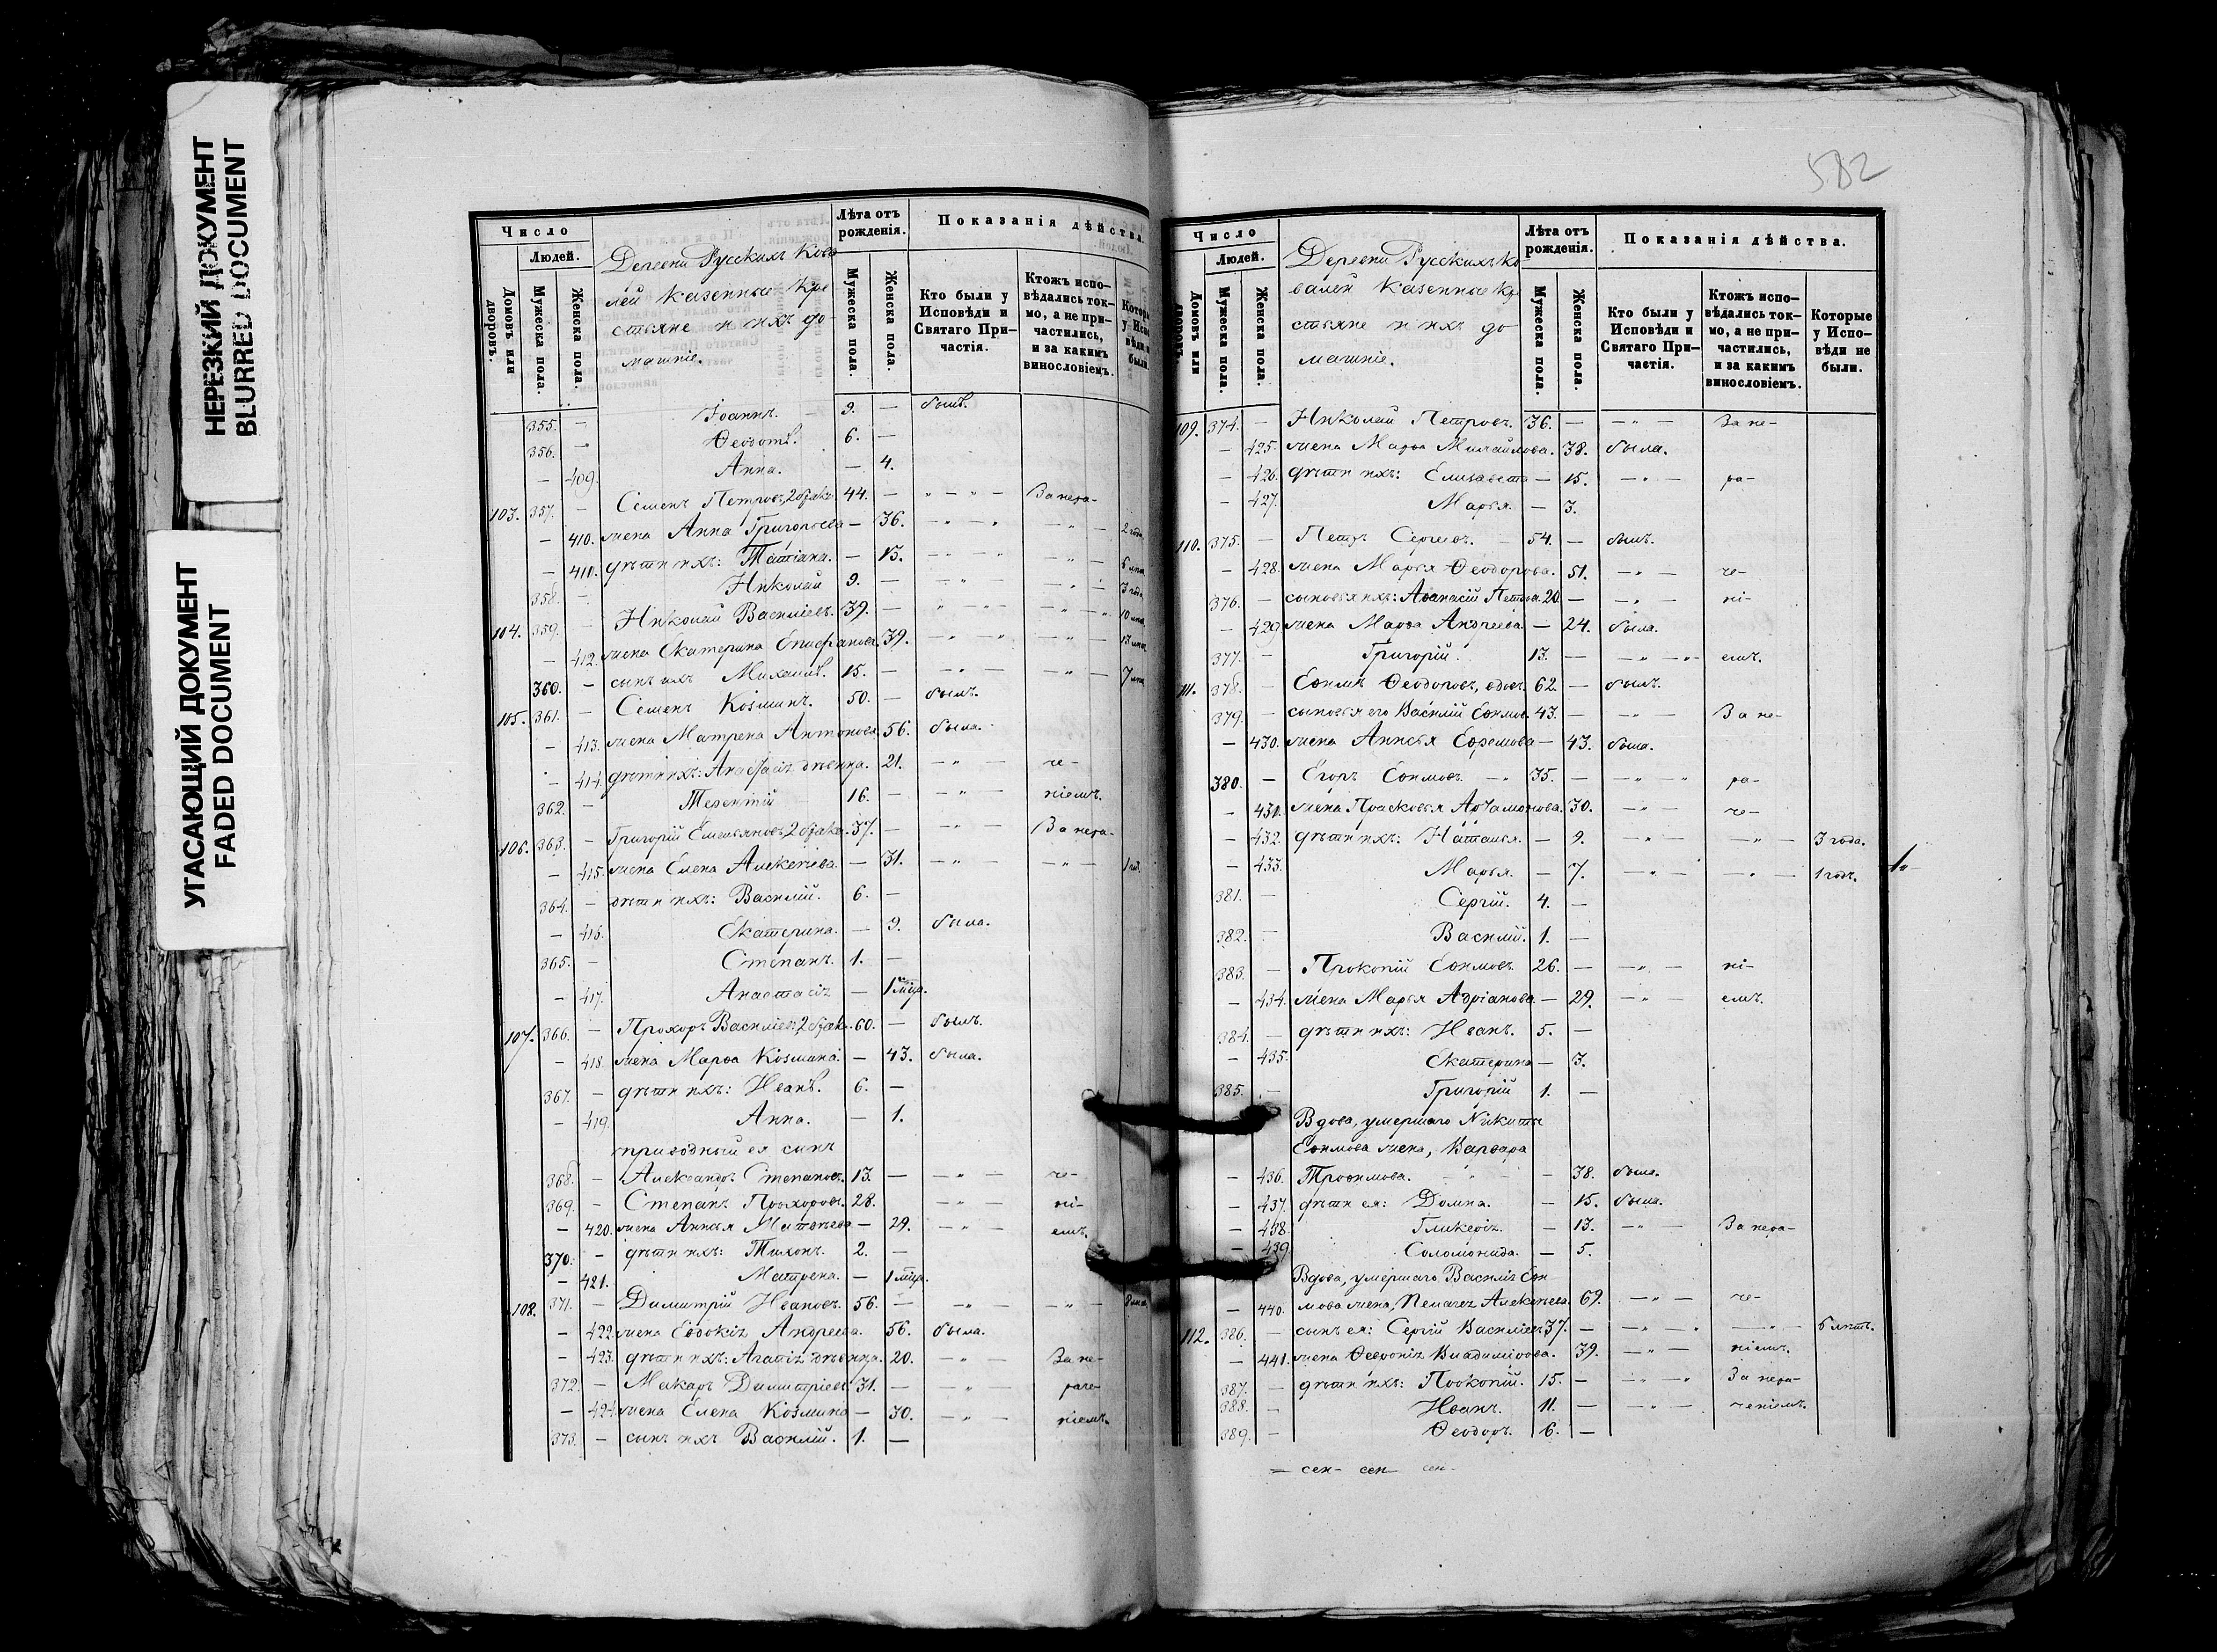 НЕРЕЗКИЙ ДОКУМЕНТ
BLURRED DOCUMENT
УГАСАЮЩИЙ ДОКУМЕНТ
FADED DOCUMENT
Число
Людей.
Домовъ или дворовъ.
Мужеска пола.
Женска пола.
Деревни Русскихъ Кова
лей казенные кре
стьяне и ихъ до
машніе.
Лѣта отъ рожденія.
Мужеска пола.
Женска пола.
Показанія дѣйства.
Кто были у Исповѣди и Святаго Причастія.
Ктожъ исповѣдались токмо, а не причастились, и за какимъ винословіемъ.
355. — Іоаннъ. — 9. — былъ.
356. — Ѳеодотъ. 6. —
— 409. Анна. — 4.
103. 357. — Семенъ Петровъ, 2 брака. 44. — — " — За нера-
— 410. жена Анна Григорьева — 36. — " — — " — 2 года.
— 410. дѣти ихъ: Татіана. — 13. — " — — " —
358. — Николай 9. — — " — — " — 3 года.
104. 359. — Николай Василіевъ. 39. — — " — — " —
— 412. жена Екатерина Епифанова. 39. — " — — " —
360. — сынъ ихъ Михаилъ. 15. — — " — — " —
105. 361. — Семенъ Козминъ. 50. — былъ.
— 413. жена Матрена Антонова. 56. была.
— 414. дѣти ихъ: Анастасія дѣвица. 21. — " — че-
362. — Терентій 16. — — " — ніемъ.
106. 363. — Григорій Емельяновъ 2 брака. 37. — — " — За нера-
— 415. жена Елена Алексіева. — 31. — " — — " — 1 год.
364. — дѣти ихъ: Василій. 6. —
— 416. Екатерина. — 9. была.
365. — Степанъ. 1. —
— 417. Анастасія — 1 мѣсяц.
107. 366. — Прохоръ Василіевъ 2 брака. 60. — былъ.
— 418. жена Марѳа Козмина. — 43. была.
367. — дѣти ихъ: Иванъ. 6. —
— 419. Анна. — 1.
приводный ея сынъ
368. — Александръ Степановъ. 13. — — " — че-
369. — Степанъ Прохоровъ. 28. — " — ні-
— 420. жена Анисья Матвѣева — 29. — " — емъ.
370. — дѣти ихъ: Тихонъ. 2. —
— 421. Матрена. — 1 мѣсяц.
108. 371. — Димитрій Ивановъ. 56. — — " — — " —
— 422. жена Евдокія Андреева. 56. была.
— 423. дѣти ихъ: Агапія дѣвица. 20. — " — За не-
372. — Макаръ Димитріевъ. 31. — — " — раче-
— 424. жена Елена Козмина — 30. — " — ніемъ.
373. — сынъ ихъ Василій. 1. —
582
Число
Людей.
Домовъ или дворовъ.
Мужеска пола.
Женска пола.
Деревни Русскихъ Ко
валей казенные кре
стьяне и ихъ до
машніе.
Лѣта отъ рожденія.
Мужеска пола.
Женска пола.
Показанія дѣйства.
Кто были у Исповѣди и Святаго Причастія.
Ктожъ исповѣдались токмо, а не причастились, и за какимъ винословіемъ.
Которые у Исповѣди не были.
109. 374. — Николай Петровъ. 36. — — " — За не-
— 425. жена Марѳа Михайлова. 38. была.
— 426. дѣти ихъ: Елизавета — 15. — " — ра-
— 427. Марья. — 3.
110. 375. — Петръ Сергіевъ. 54. — былъ.
— 428. жена Марья Ѳеодорова. 51. — " — че-
376. — сыновья ихъ: Аѳанасій Петровъ. 20. — — " — ні-
— 429. жена Марѳа Андреева. — 24. была.
377. — Григорій. 13. — — " — емъ.
111. 378. — Еѳимъ Ѳеодоровъ, вдовъ. 62. — былъ.
379. — сыновья его Василій Еѳимов. 43. — — " — За не-
— 430. жена Анисья Ефремова — 43. была.
380. — Егоръ Еѳимовъ. 35. — — " — ра-
— 431. жена Прасковья Артамонова. 30. — " — че-
— 432. дѣти ихъ: Наталья. — 9. — " — — " — 3 года.
— 433. Марья. — 7. — " — — " — 1 годъ.
381. Сергій. 4. —
382. — Василій. 1. —
383. — Прокопій Еѳимовъ. 26. — — " — ні-
— 434. жена Марья Адріанова. — 29. — " — емъ.
384. — дѣти ихъ: Иванъ. 5. —
— 435. Екатерина — 3.
385. — Григорій 1. —
Вдова, умершаго Никиты
Еѳимова жена, Варвара
— 436. Троѳимова. — 38. была.
— 437. дѣти ея: Домна. — 15. была.
— 438. Гликерія. — 13. — " — За нера-
— 439. Соломонида. — 5.
Вдова, умершаго Василія Еѳи
— 440. мова жена, Пелагея Алексіева. 69. — " — че-
112. 386. — сынъ ея: Сергій Василіевъ 37. — — " — — " — 6 лѣтъ.
— 441. жена Ѳевронія Владимірова. 39. — " — ніемъ.
387. — дѣти ихъ: Прокопій. 15. — — " — За нера-
388. — Иванъ. 11. — — " — ченіемъ.
389. — Ѳеодоръ. 6. —